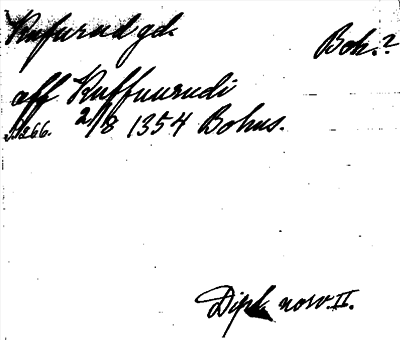 Ruffurud gd. Boh.?
aff Ruffuurudi
S266. 2/8 1354 Bohus.
Dipl. norv. II.